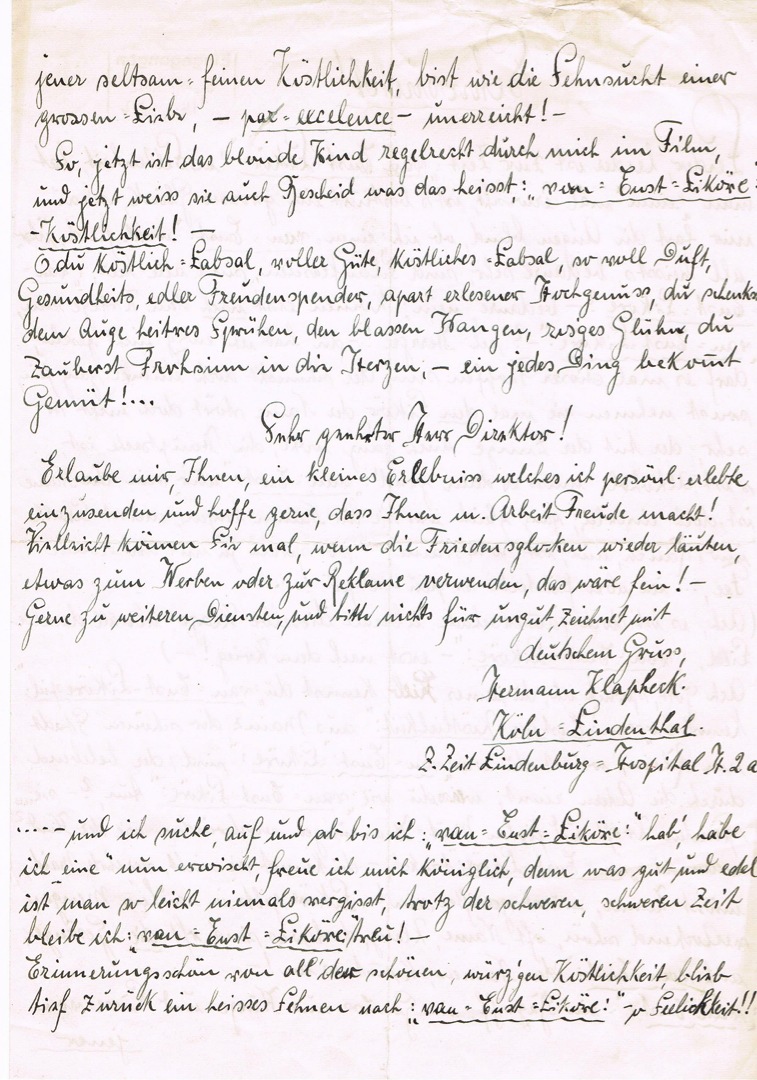 jener seltsam = feinen Köstlichkeit, bist wie die Sehnsucht einer
grossen = Liebe, – par = excelence – unerreicht! –
So, jetzt ist das blonde Kind regelrecht durch mich im Film,
und jetzt weiss sie auch Bescheid was das heisst,: „van = Eust = Liköre =
-Köstlichkeit! –
O du Köstlich = Labsal, voller Güte köstliches = Labsal so voll Duft,
Gesundheits, edler Freudenspender, apart erlesener Hochgenuss, du schenkst
dem Auge heitres Sprühen, den blassen Wangen, rosges Glühn, du
zauberst Frohsinn in die Herzen, – ein jedes Ding bekommt
Gemüt!...
Sehr geehrter Herr Direktor!
Erlaube mir, Ihnen, ein kleines Erlebniss welches ich persönl. erlebte
einzusenden und hoffe gerne, dass Ihnen m. Arbeit Freude macht!
Vielleicht können Sie mal, wenn die Friedensglocken wieder läuten,
etwas zum Werben oder zur Reklame verwenden, das wäre fein! –
Gerne zu weiteren Diensten, und bitte nichts für ungut, zeichnet mit
deutschem Gruss,
Hermann Klapheck.
Köln = Lindenthal.
Z. Zeit Lindenburg = Hospital H. 2 a
..... – und ich suche, auf und ab bis ich: „van = Eust = Liköre!" hab', habe
ich „eine" nun erwischt, freue ich mich königlich, denn was gut und edel
ist man so leicht niemals vergisst, trotz der schweren, schweren Zeit
bleibe ich: „van = Eust = Liköre!" treu! –
Erinnerungsschön von all' der schönen, würz'gen Köstlichkeit, blieb
tief zurück ein heisses Sehnen nach: „van = Eust = Liköre!" – Seelichkeit!!